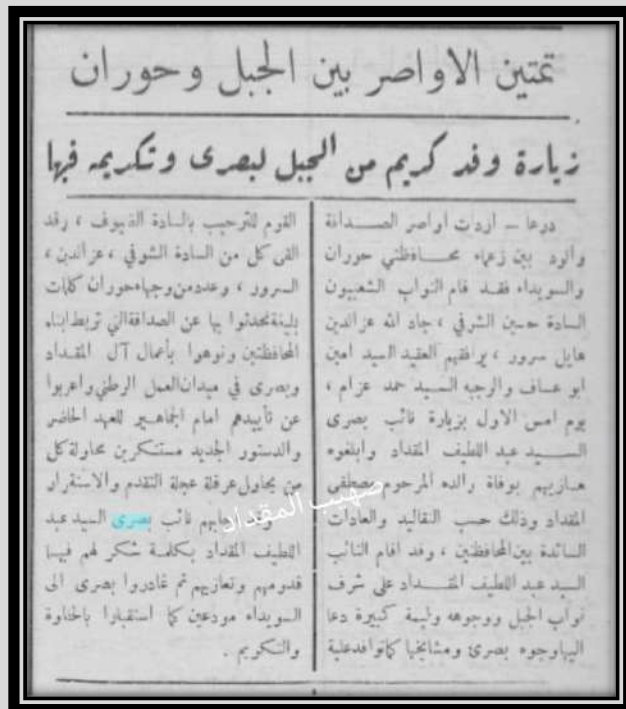 تمتين الاواصر بين الجبل وحوران
زيارة وفد كريم من الجبل لبصرى وتكريمه فيها
درعا – ازدادت اواصر الصداقة
والود بين زعماء محافظتي حوران
والسويداء فقد قام النواب الشعبيون
السادة حسين الشوفي ، جاد الله عز الدين
هايل سرور ، يرافقهم العقيد السيد امين
ابو عساف والوجيه السيد حمد عزام ،
يوم امس الاول بزيارة نائب بصرى
السيد عبد اللطيف المقداد وابلغوه
تعازيهم بوفاة والده المرحوم مصطفى
المقداد وذلك حسب التقاليد والعادات
السائدة بين المحافظتين ، وقد اقام النائب
السيد عبد اللطيف المقداد على شرف
نواب الجبل ووجوهه وليمة كبيرة دعا
اليها وجوه بصرى ومشايخها كما توافد علية
القوم للترحيب بالسادة الضيوف ، وقد
القى كل من السادة الشوفي ، عز الدين ،
السرور ، وعدد من وجهاء حوران كلمات
بليغة تحدثوا بها عن الصداقة التي تربط ابناء
المحافظتين ونوهوا بأعمال آل المقداد
وبصرى في ميدان العمل الوطني واعربوا
عن تأييدهم امام الجماهير للعهد الحاضر
والدستور الجديد مستنكرين محاولة كل
من يحاول عرقلة عجلة التقدم والاستقرار
نائب بصرى السيد عبد
اللطيف المقداد بكلمة شكر لهم فيها
قدومهم وتعازيهم ثم غادروا بصرى الى
السويداء مودعين كما استقبلوا بالحفاوة
والتكريم .
صهيب المقداد